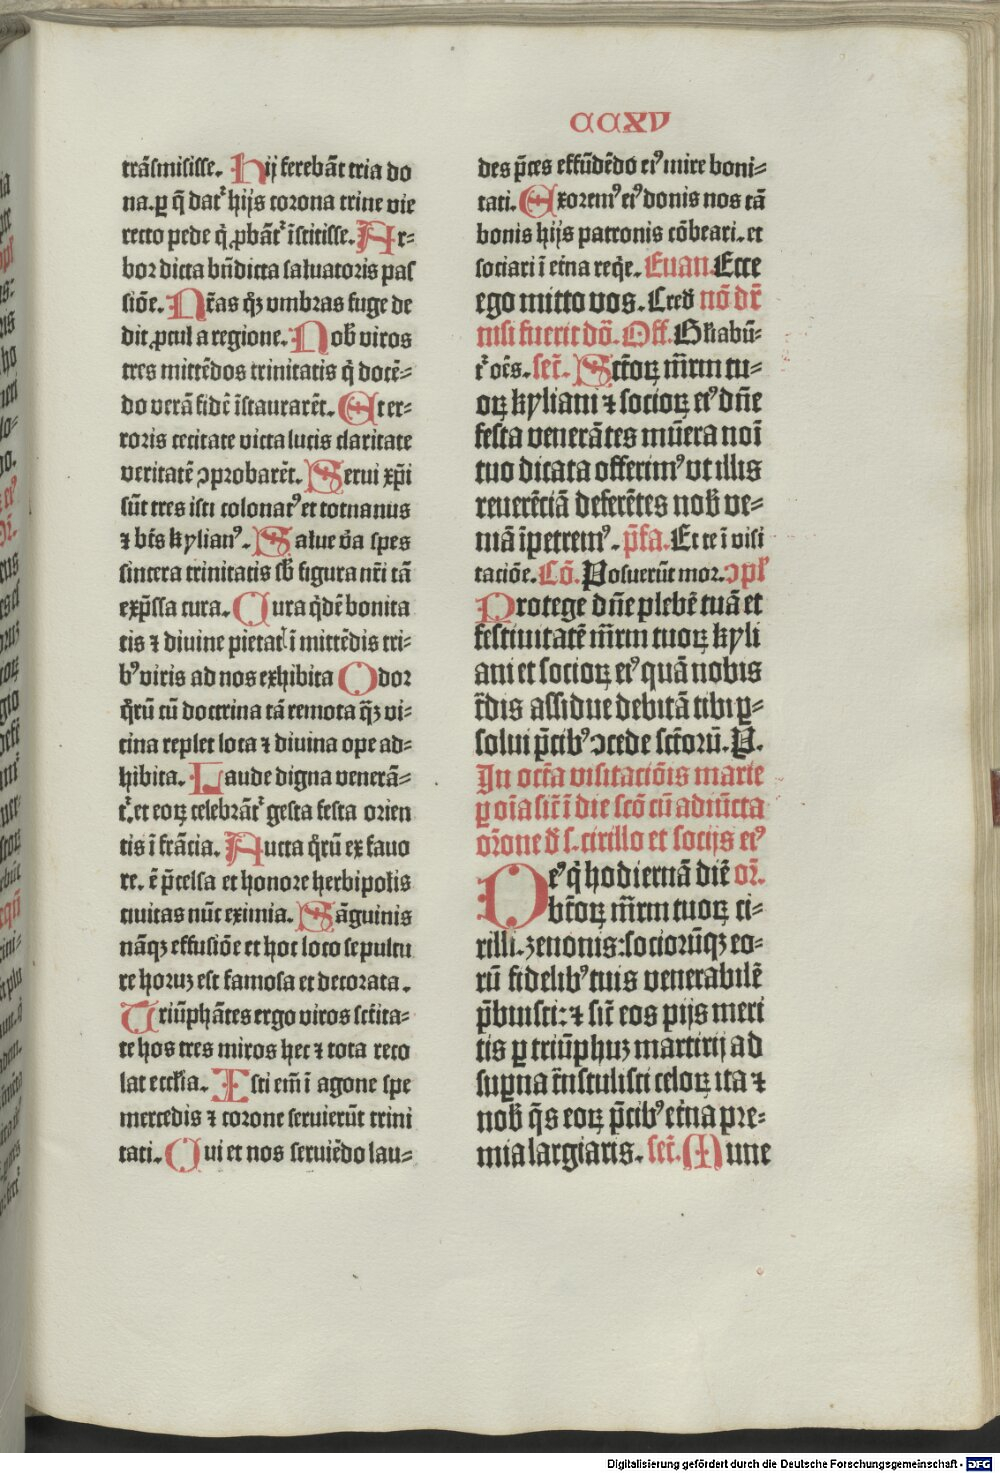 CCXV
trāsmisisse. Hij ferebāt tria do
na. ꝑ q̄ datᷣ hijs corona trine vie
recto pede q̇ ꝓbātᷣ īstitisse. Ar-
bor dicta bn̄dicta saluatoris pas
siōe. Nr̄as q̄ꝫ vmbras fuge de
dit ꝓcul a regione. Nob̄ viros
tres mittēdos trinitatis q̇ docē-
do verā fidē īstaurarēt. Et er-
roris cecitate victa lucis claritate
veritatē ꝯprobarēt. Serui xp̄i
sūt tres isti colonatꝰ et totnanus
⁊ bt̄s kylianꝰ. Salue v̄a spes
sincera trinitatis sb̄ figura nr̄i tā
exp̄ssa cura. Cura q̇dē bonita
tis ⁊ diuine pietat̄ ī mittēdis tri-
bꝰ viris ad nos exhibita Odor
q̇rū cū doctrina tā remota q̄ꝫ vi-
cina replet loca ⁊ diuina ope ad-
hibita. Laude digna venerā-
tᷣ. et eoꝝ celebrātᷣ gesta festa orien
tis ī frācia. Aucta q̇rū ex fauo
re. ē p̄celsa et honore herbipolis
ciuitas nūc eximia. Sāguinis
nāqꝫ effusiōe et hoc loco sepultu
re horuꝫ est famosa et decorata.
Triūphātes ergo viros sc̄tita-
te hos tres miros hec ⁊ tota reco
lat eccl̄ia. Isti em̄ ī agone spe
mercedis ⁊ corone seruierūt trini
tati. Qui et nos seruiēdo lau-
des p̄ces effūdēdo eiꝰ mire boni-
tati. Exoremꝰ eiꝰ donis nos tā
bonis hijs patronis cōbeari. et
sociari ī et̄na req̇e. Euan. Ecce
ego mitto vos. Cred nō dr̄
nisi fuerit dō. Off. Gl̄iabū-
tᷣ oēs. sec̄. Sc̄toꝝ m̄rm tu-
oꝝ kyliani ⁊ socioꝝ eiꝰ dn̄e
festa venerātes mūera noī
tuo dicata offerimꝰ vt illis
reuerētiā deferētes nob̄ ve-
niā īpetremꝰ. p̄fa. Et te ī visi
tatiōe. Cō. Posuerūt mor. ꝯpl̄
Protege dn̄e plebē tuā et
festiuitatē m̄rm tuoꝝ kyli
ani et socioꝝ eiꝰ quā nobis
tr̄dis assidue debitā tibi ꝑ-
solui p̄cibꝰ ꝯcede sc̄toꝝ. P.
In octa visitatiōis marie
ꝑ oīa sic̄ ī die scō cū adiūcta
orōne d̄ s. cirillo et socijs eiꝰ
Deꝰ q̇ hodiernā diē or̄.
bt̄oꝝ m̄rm tuoꝝ ci-
rilli. zenonis: sociorūqꝫ eo-
rū fidelibꝰ tuis venerabilē
p̄buisti: ⁊ sic̄ eos pijs meri
tis ꝑ triūphuꝫ martirij ad
suꝑna tr̄nstulisti celoꝝ ita ⁊
nob̄ q̄s eoꝝ p̄cibꝰ et̄na pre-
mia largiaris. sec̄. Mune
Digitalisierung gefördert durch die Deutsche Forschungsgemeinschaft - DFG